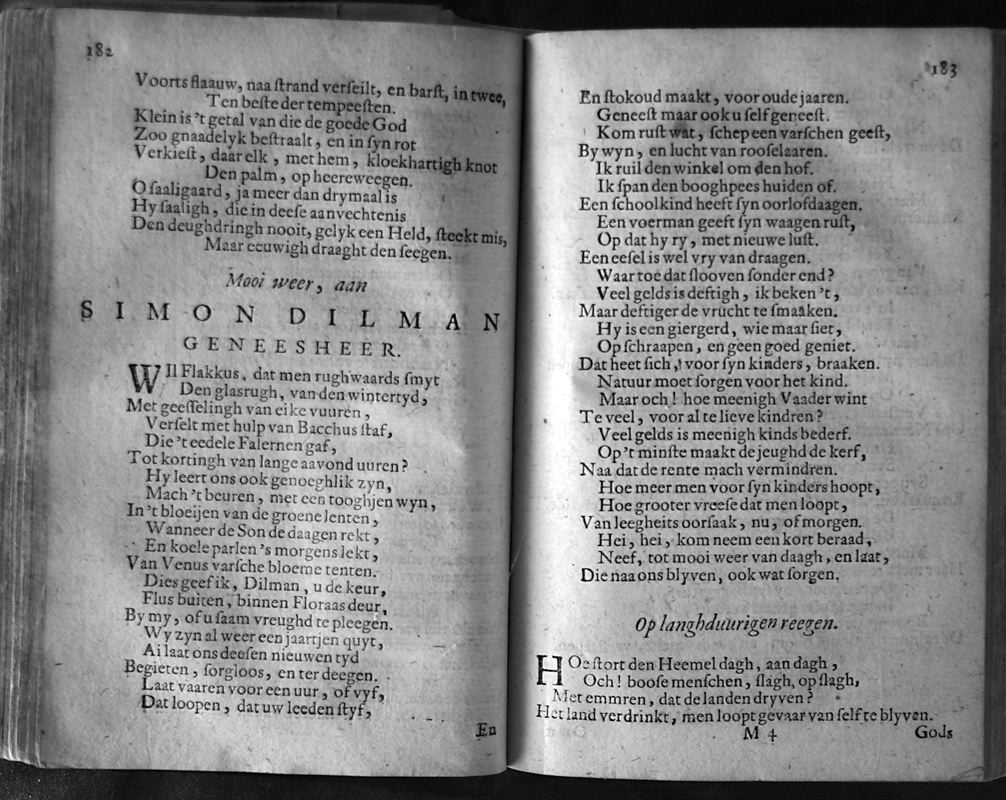 182
Voorts flaauw, naa ſtrand verſeilt, en barſt, in twee,
Ten beſte der tempeeſten.
Klein is 't getal van die de goede God
Zoo gnaadelyk beſtraalt, en in ſyn rot
Verkieſt, daar elk, met hem, kloekhartigh knot
Den palm, op heereweegen.
O ſaaligaard, ja meer dan drymaal is
Hy ſaaligh, die in deeſe aanvechtenis
Den deughdringh nooit, gelyk een Held, ſteekt mis,
Maar eeuwigh draaght den ſeegen.
Mooi weer, aan
SIMON DILMAN
GENEESHEER.
WIl Flakkus, dat men rughwaards ſmyt
Den glasrugh, van den wintertyd,
Met geeſſelingh van eike vuuren,
Verſelt met hulp van Bacchus ſtaf,
Die 't eedele Falernen gaf,
Tot kortingh van lange aavond uuren?
Hy leert ons ook genoeghlik zyn,
Mach 't beuren, met een tooghjen wyn,
In 't bloeijen van de groene lenten,
Wanneer de Son de daagen rekt,
En koele parlen 's morgens lekt,
Van Venus varſche bloeme tenten.
Dies geef ik, Dilman, u de keur,
Flus buiten, binnen Floraas deur,
By my, of u ſaam vreughd te pleegen.
Wy zyn al weer een jaartjen quyt,
Ai laat ons deeſen nieuwen tyd
Begieten, ſorgloos, en ter deegen.
Laat vaaren voor een uur, of vyf,
Dat loopen, dat uw leeden ſtyf,
En
183
En ſtokoud maakt, voor oude jaaren.
Geneeſt maar ook u ſelf geneeſt.
Kom ruſt wat, ſchep een varſchen geeſt,
By wyn, en lucht van rooſelaaren.
Ik ruil den winkel om den hof.
Ik ſpan den booghpees huiden of.
Een ſchoolkind heeft ſyn oorlofdaagen.
Een voerman geeft ſyn waagen ruſt,
Op dat hy ry, met nieuwe luſt.
Een eeſel is wel vry van draagen.
Waar toe dat ſlooven ſonder end?
Veel gelds is deftigh, ik beken 't,
Maar deftiger de vrucht te ſmaaken.
Hy is een giergerd, wie maar ſiet,
Op ſchraapen, en geen goed geniet.
Dat heet ſich, voor ſyn kinders, braaken.
Natuur moet ſorgen voor het kind.
Maar och! hoe meenigh Vaader wint
Te veel, voor al te lieve kindren?
Veel gelds is meenigh kinds bederf.
Op 't minſte maakt de jeughd de kerf,
Naa dat de rente mach vermindren.
Hoe meer men voor ſyn kinders hoopt,
Hoe grooter vreeſe dat men loopt,
Van leegheits oorſaak, nu, of morgen.
Hei, hei, kom neem een kort beraad,
Neef, tot mooi weer van daagh, en laat,
Die naa ons blyven, ook wat ſorgen.
Op langhduurigen reegen.
HOe ſtort den Heemel dagh, aan dagh,
Och! booſe menſchen, ſlagh, op ſlagh,
Met emmren, dat de landen dryven?
Het land verdrinkt, men loopt gevaar van ſelf te blyven.
M 4
Gods